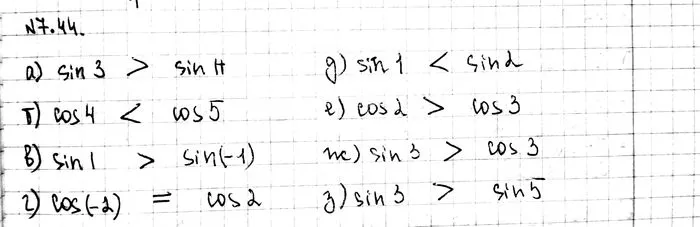 N7.44.
а) sin 3 > sin 4
б) cos 4 < cos 5
в) sin 1 > sin(-1)
г) cos(-2) = cos 2
д) sin 1 < sin 2
е) cos 2 > cos 3
ж) sin 3 > cos 3
з) sin 3 > sin 5